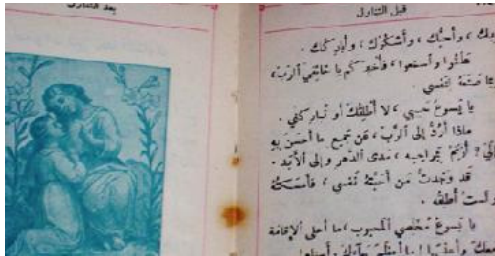 قبل التناول
بعد التناول
ـدك ، وأحبّك ، وأشكرك ، وأباركك .
هلمّوا واسمعوا ، فأخبركم يا خائفي الربّ ،
بما صنعه لنفسي
يا يسوع حبيبي ، لا أطلقك أو تباركني .
ماذا أردّ إلى الربّ ، عن جميع ما أحسن به
إليّ ؟ أترنّم بمراحمه ، مدى الدهر وإلى الأبد .
قد وجدت من أحبّته نفسي ، فأمسكته
ولست أطلقه .
يا يسوع مخلّصي المحبوب ، ما أحلى الإقامة
معك